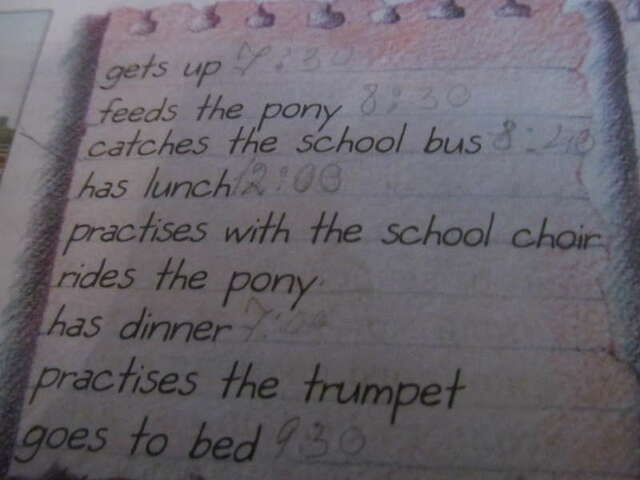 gets up 7:30
feeds the pony 8:30
catches the school bus 8:40
has lunch 12:00
practises with the school choir
rides the pony
has dinner 7:00
practises the trumpet
goes to bed 930